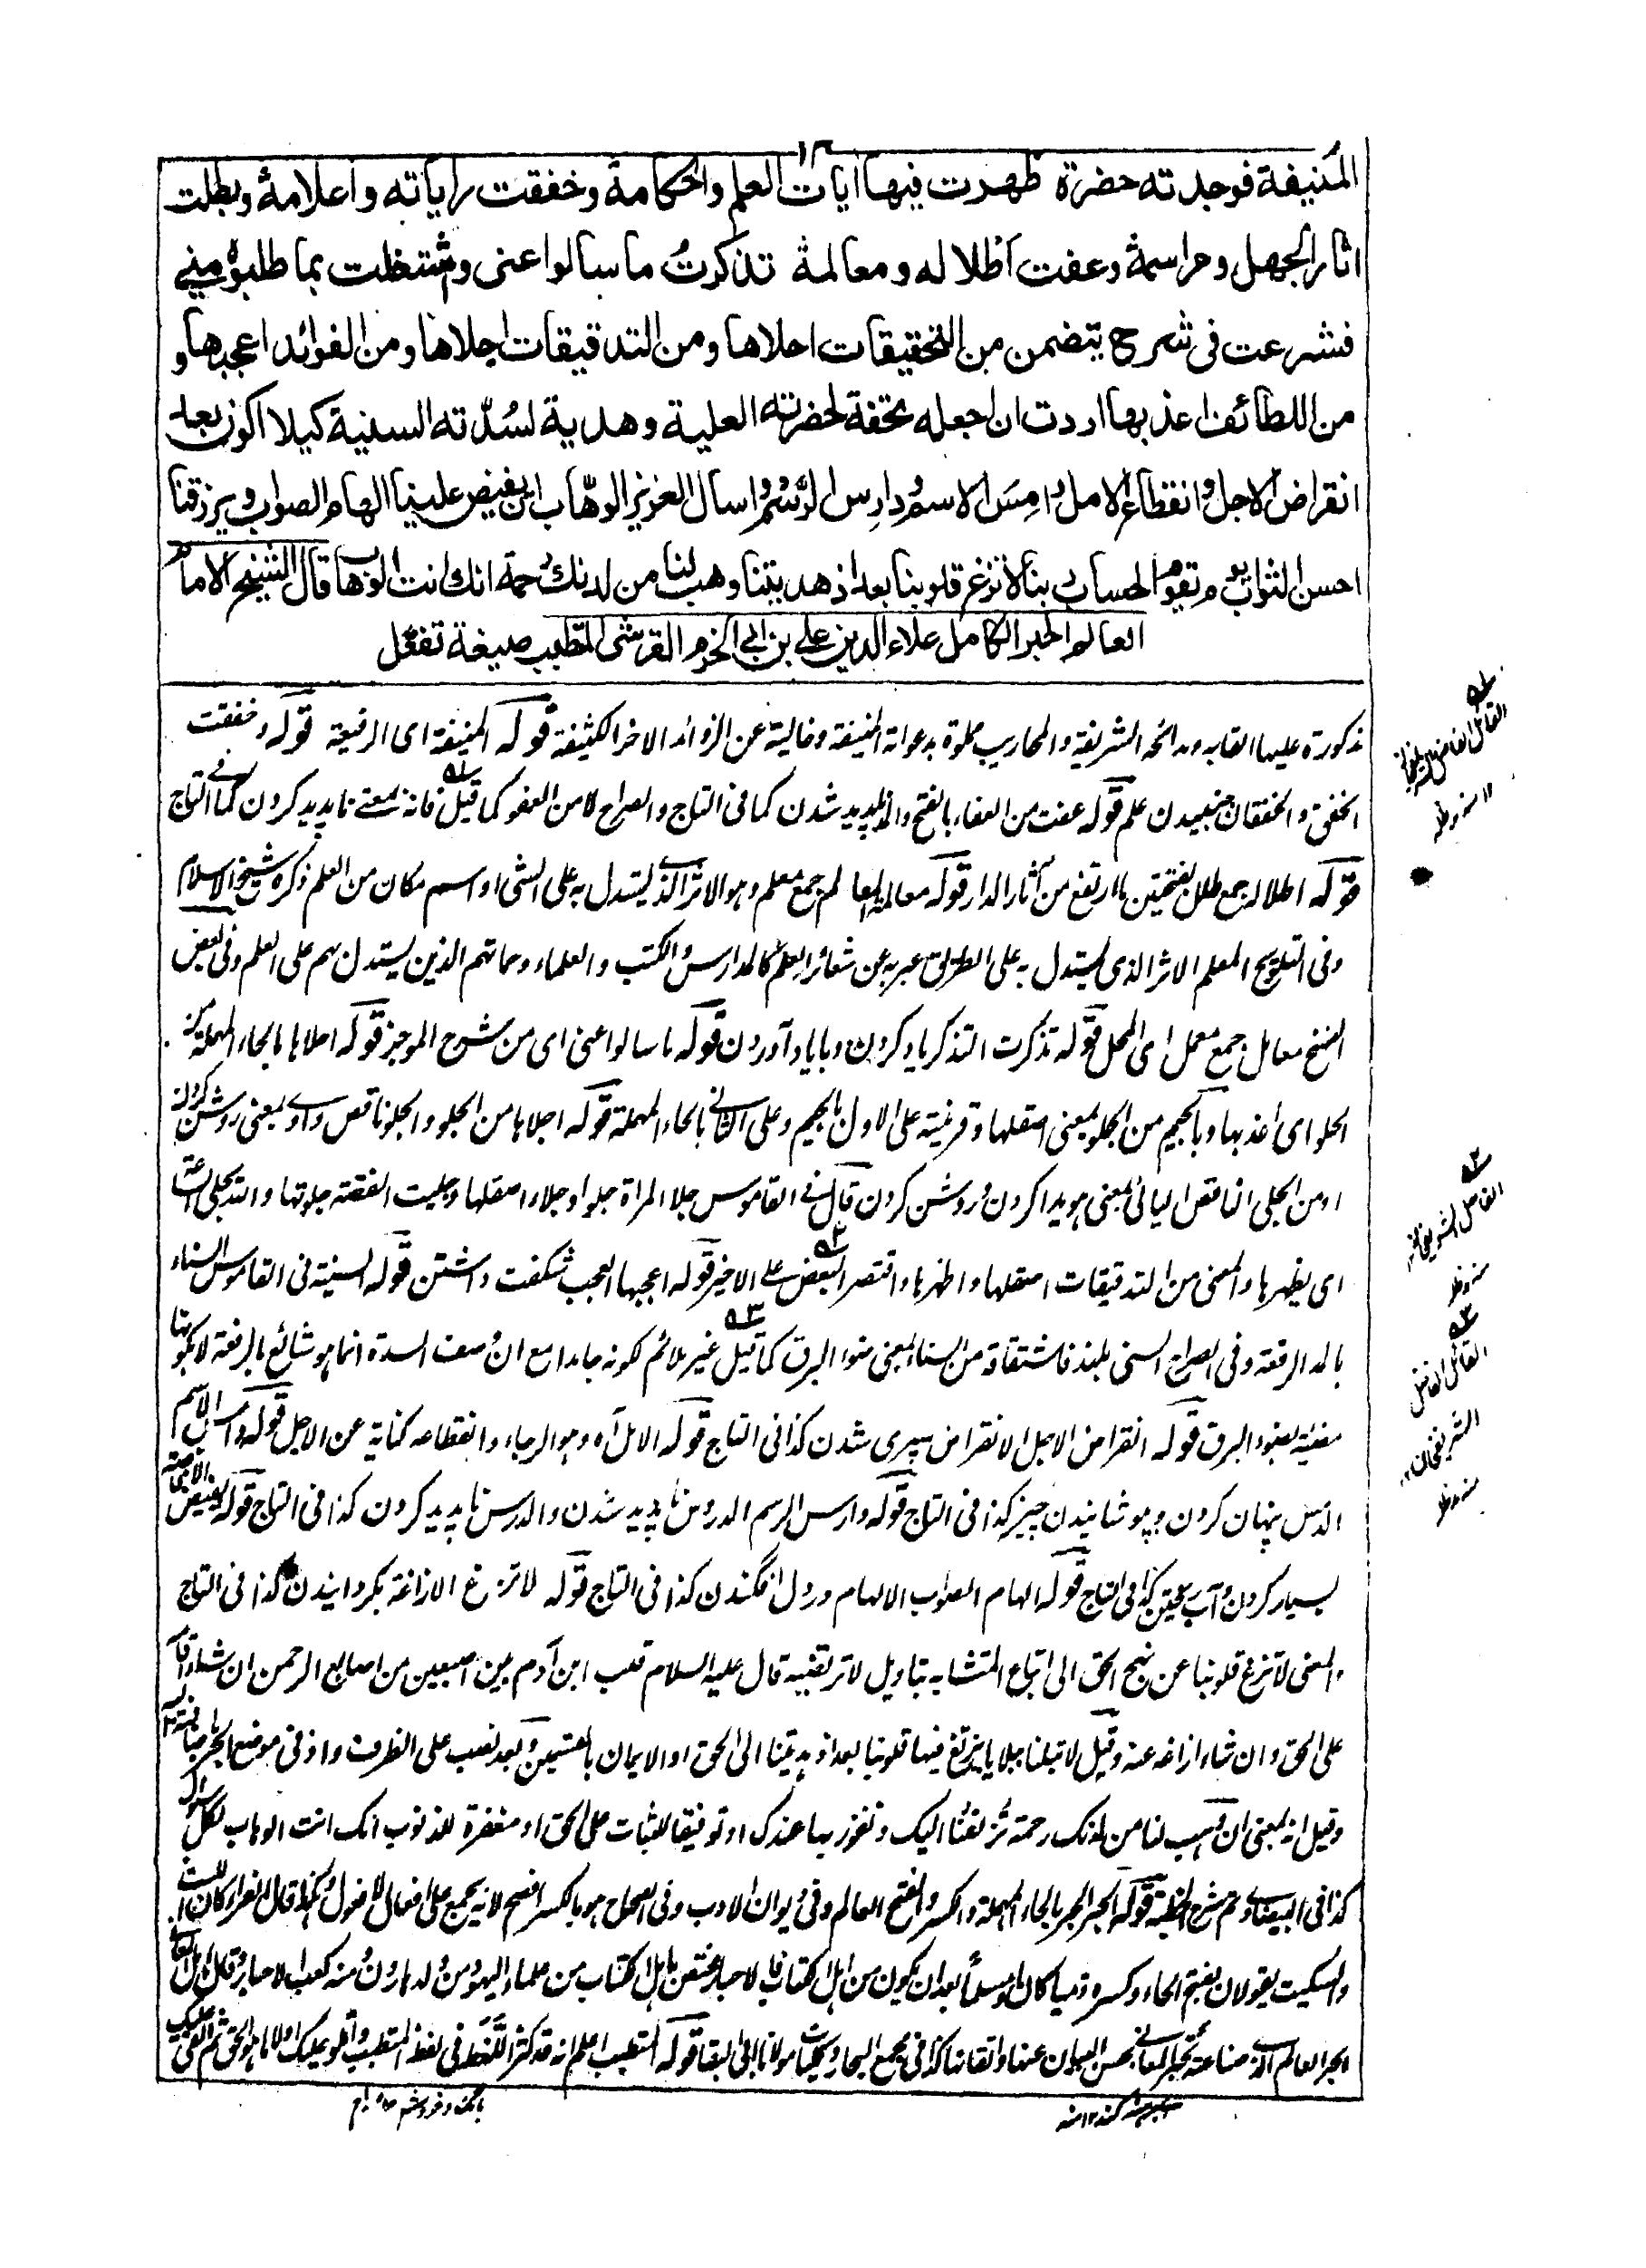 ١٣
المنيفة فوجدته حضرة ظهرت فيها ايات العلم واحكامه وخفقت راياته واعلامه وبطلت
اثار الجهل ومراسمه وعفت اطلاله ومعالمه تذكرت ما سالوا عنى وتشتغلت بما طلبوه منى
فشرعت فى شرح يتضمن من التحقيقات احلاها ومن التدقيقات اجلاها ومن الفوائد اعجبها و
من اللطائف اعذبها اردت ان اجعله تحفة لحضرته العلية وهدية لسدّته السنية كيلا اكون بعد
انقراض الاجل وانقطاع الامل دامس الاسم ودارس الرسم واسال العزيز الوهّاب ان يفيض علينا الهام الصواب ويرزقنا
احسن الثواب يوم تقوم الحساب ربنا لا تزغ قلوبنا بعد اذ هديتنا وهب لنا من لدنك رحمة انك انت الوهاب قال الشيخ الامام
العالم الحبر الكامل علاء الدين على بن ابى الحزم القرشى المتطبب صيغة تفعّل
ذكورة عليها القابه ومدائحه الشريفة والمحاريب مملوة بدعواته المنيفة وخالية عن الزوائد الاخر الكثيفة قوله المنيفة اى الرفيعة قوله وخفقت
الخفق والخفقان جنبيدن علم قوله عفت من العفاء بالفتح والمد ناپديد شدن كما فى التاج والصراح لا من العفو كما قيل فانه بمعنے ناپديد كردن كما فى التاج
قوله اطلاله جمع طلل بفتحتين ما ارتفع من آثار الدار قوله معالمه المعالم جمع معلم وهو الاثر الذى يستدل به على الشى او اسم مكان من العلم ذكره شيخ الاسلام
وفى التلويح المعلم الاثر الذى يستدل به على الطريق عبر به عن شعائر العلم كالمدارس والكتب والعلماء وحماتهم الذين يستدل بهم على العلم وفى بعض
النسخ معامل جمع معمل اى المحل قوله تذكرت التذكر ياد كردن وبا ياد آوردن قوله ما سالوا عنى اى من شرح الموجز قوله احلاها بالحاء المهملة من
الحلو اى اعذبها وبالجيم من الجلو بمعنى اصقلها وقرينته على الاول بالجيم وعلى الثانى بالحاء المهملة قوله اجلاها من الجلو والجلو ناقص واوى بمعنى روشن كردن
او من الجلى الناقص اليائى بمعنى هويدا كردن وروشن كردن قال فى القاموس جلا المراة جلوا وجلاء صقلها وجليت الفضة جلوتها والله يجلى الساعة
اى يظهرها والمعنى من التدقيقات اصقلها واظهرها واقتصر البعض على الاخير قوله اعجبها العجب شگفت داشتن قوله السنية فى القاموس السناء
بالمد الرفعة وفى الصراح السنى بلند فاشتقاقه من السنا بمعنى ضوء البرق كما قيل غير ملائم لكونه جامدا مع ان وصف السدة انما هو شائع بالرفعة لا بكونها
مضيئة بضوء البرق قوله انقراض الاجل الانقراض سپرى شدن كذا فى التاج قوله الامل آه وهو الرجاء وانقطاعه كناية عن الاجل قوله دامس الاسم
الدمس پنهان كردن وپوشانيدن چيز كذا فى التاج قوله دارس الرسم الدروس ناپديد شدن والدرس ناپديد كردن كذا فى التاج قوله يفيض الافاضة
بسيار كردن وآب ريختن كذا فى التاج قوله الهام الصواب الالهام در دل افگندن كذا فى التاج قوله لا تزغ الازاغة بگردانيدن كذا فى التاج
والمعنى لا تزغ قلوبنا عن نهج الحق الى اتباع المتشابه بتاويل لا ترتضيه قال عليه السلام قلب ابن آدم بين اصبعين من اصابع الرحمن ان شاء اقامه
على الحق وان شاء ازاغه عنه وقيل لا تبلنا ببلايا يزيغ فيها قلوبنا بعد اذ هديتنا الى الحق او الايمان بالقسمين وبعد نصب على الظرف واذ فى موضع الجر باضافته اليه
وقيل انه بمعنى ان وهب لنا من لدنك رحمة تزلفنا اليك ونفوز بها عندك او توفيقا للثبات على الحق او مغفرة للذنوب انك انت الوهاب لكل سؤل
كذا فى البيضاوى وتم شرح الخطبة قوله الحبر الحبر بالحاء المهملة والكسر والفتح العالم وفى ديوان الادب وفى الصحاح هو بالكسر افصح لانه يجمع على افعال لا فعول وكذا قال الفراء وكان الليث
وابن السكيت يقولان بفتح الحاء وكسره ذميا كان او مسلما بعد ان يكون من اهل الكتاب فالاحبار مختص باهل الكتاب من علماء اليهود من ولد هارون ومنه كعب الاحبار وقال اهل المعانى
الحبر العالم الذى صناعته تحبير المعانى بحسن البيان عنها واتقانها كذا فى مجمع البحار وكليات مولانا ابى البقا قوله المتطبب اعلم انه قد كثر اللغط فى لفظ المتطبب واتلو عليك اولا ما هو الحق ثم القى عليك
القائل الفاضل الشريف خان ١٢ منه مد ظله
الفاضل الشريف خان منه مد ظله
القائل الفاضل الشريف خان ١٢ منه مد ظله